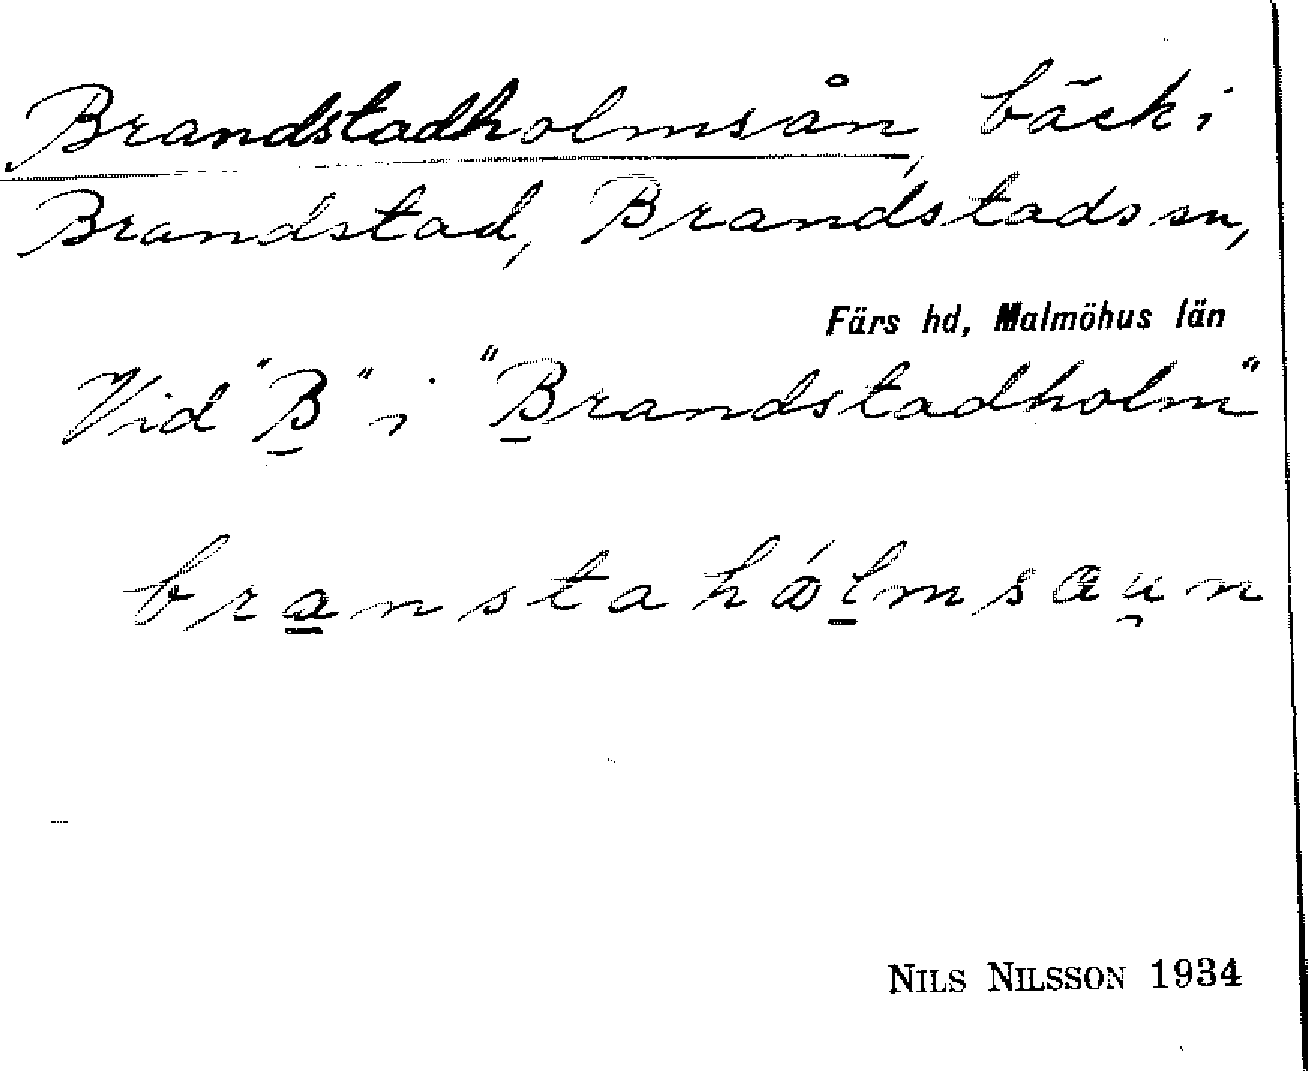 Brandstadholmsån, bäck i
Brandstad, Brandstads sn,
Färs hd, Malmöhus län
Vid "B" i "Brandstadholm"
branstahålmsaun
NILS NILSSON 1934